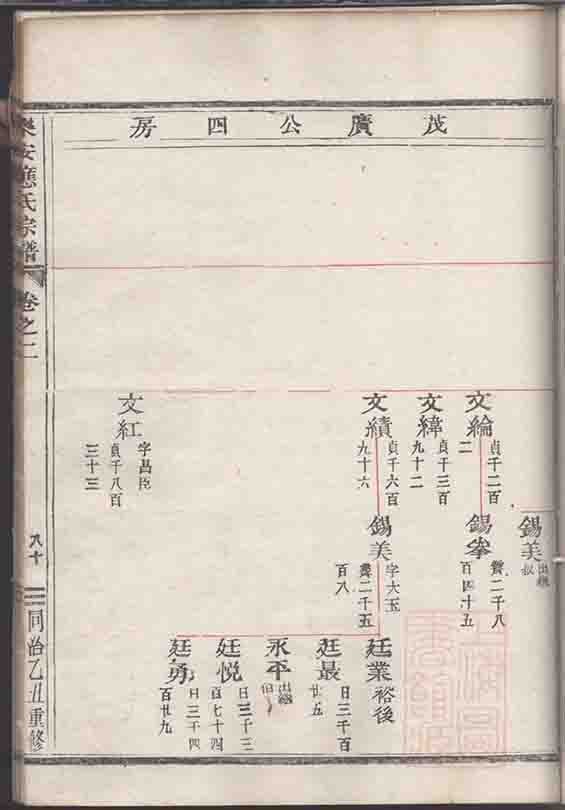 茂廣公四房
錫美
出繼
叔
文綸
貞千二百
二
錫𢫎
贊二千八
百四十五
文緯
貞千三百
九十二
文績
貞千六百
九十六
錫美
字大玉
贊二千五
百八
廷業
裕後
廷最
日三千百
廿五
永平
出繼
伯
廷悅
日三千三
百七十四
廷勇
日三千四
百廿九
文紅
字昌臣
貞千八百
三十三
樂安應氏宗譜
卷之二
九十
同治乙丑重修